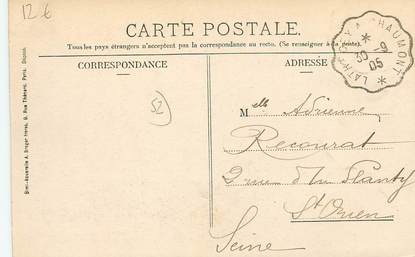 12 €
CARTE POSTALE.
Tous les pays étrangers n'acceptent pas la correspondance au recto. (Se renseigner à la poste).
CORRESPONDANCE
ADRESSE
A CHAUMONT
30 -9
05
52
Melle Adrienne
Recourat
2 rue du Planty
St Ouen
Seine
Simi-Aquarelle A. Breger frères, 9, Rue Thénard, Paris. Déposé.